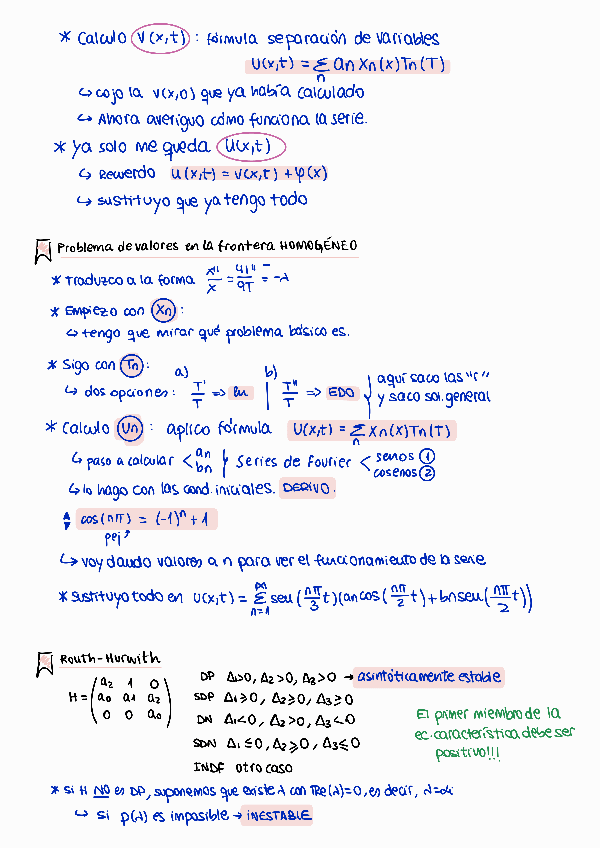 * Calculo V(x,t) : fórmula separación de variables
U(x,t) = Σ an Xn(x)Tn(T)
n
↳ cojo la v(x,0) que ya había calculado
↳ Ahora averiguo cómo funciona la serie.
* ya solo me queda U(x,t)
↳ Recuerdo u(x,t) = v(x,t) + φ(x)
↳ sustituyo que ya tengo todo
Problema de valores en la frontera HOMOGÉNEO
* Traduzco a la forma X''/X = 4T''/9T = -λ
* Empiezo con Xn :
↳ tengo que mirar qué problema básico es.
* Sigo con Tn :
a) b)
↳ dos opciones : T'/T => ln | T''/T => EDO
aquí saco las "r"
y saco sol. general
* Calculo Un : aplico fórmula U(x,t) = Σ Xn(x)Tn(T)
n
↳ paso a calcular < an bn } Series de Fourier < senos ① cosenos ②
↳ lo hago con las cond. iniciales. DERIVO.
cos(nπ) = (-1)ⁿ + 1
pej
↳ voy dando valores a n para ver el funcionamiento de la serie
* Sustituyo todo en U(x,t) = Σ sen(nπ/3 t)(an cos(nπ/2 t) + bn sen(nπ/2 t))
∞
n=1
Routh-Hurwith
H = (a2 1 0
a0 a1 a2
0 0 a0)
DP Δ1>0, Δ2>0, Δ3>0 → asintóticamente estable
SDP Δ1≥0, Δ2≥0, Δ3≥0
DN Δ1<0, Δ2>0, Δ3<0
SDN Δ1≤0, Δ2≥0, Δ3≤0
INDF otro caso
El primer miembro de la
ec. característica debe ser
positivo!!!
* Si H NO es DP, suponemos que existe λ con Re(λ)=0, es decir, λ=αi
↳ si p(λ) es imposible → INESTABLE